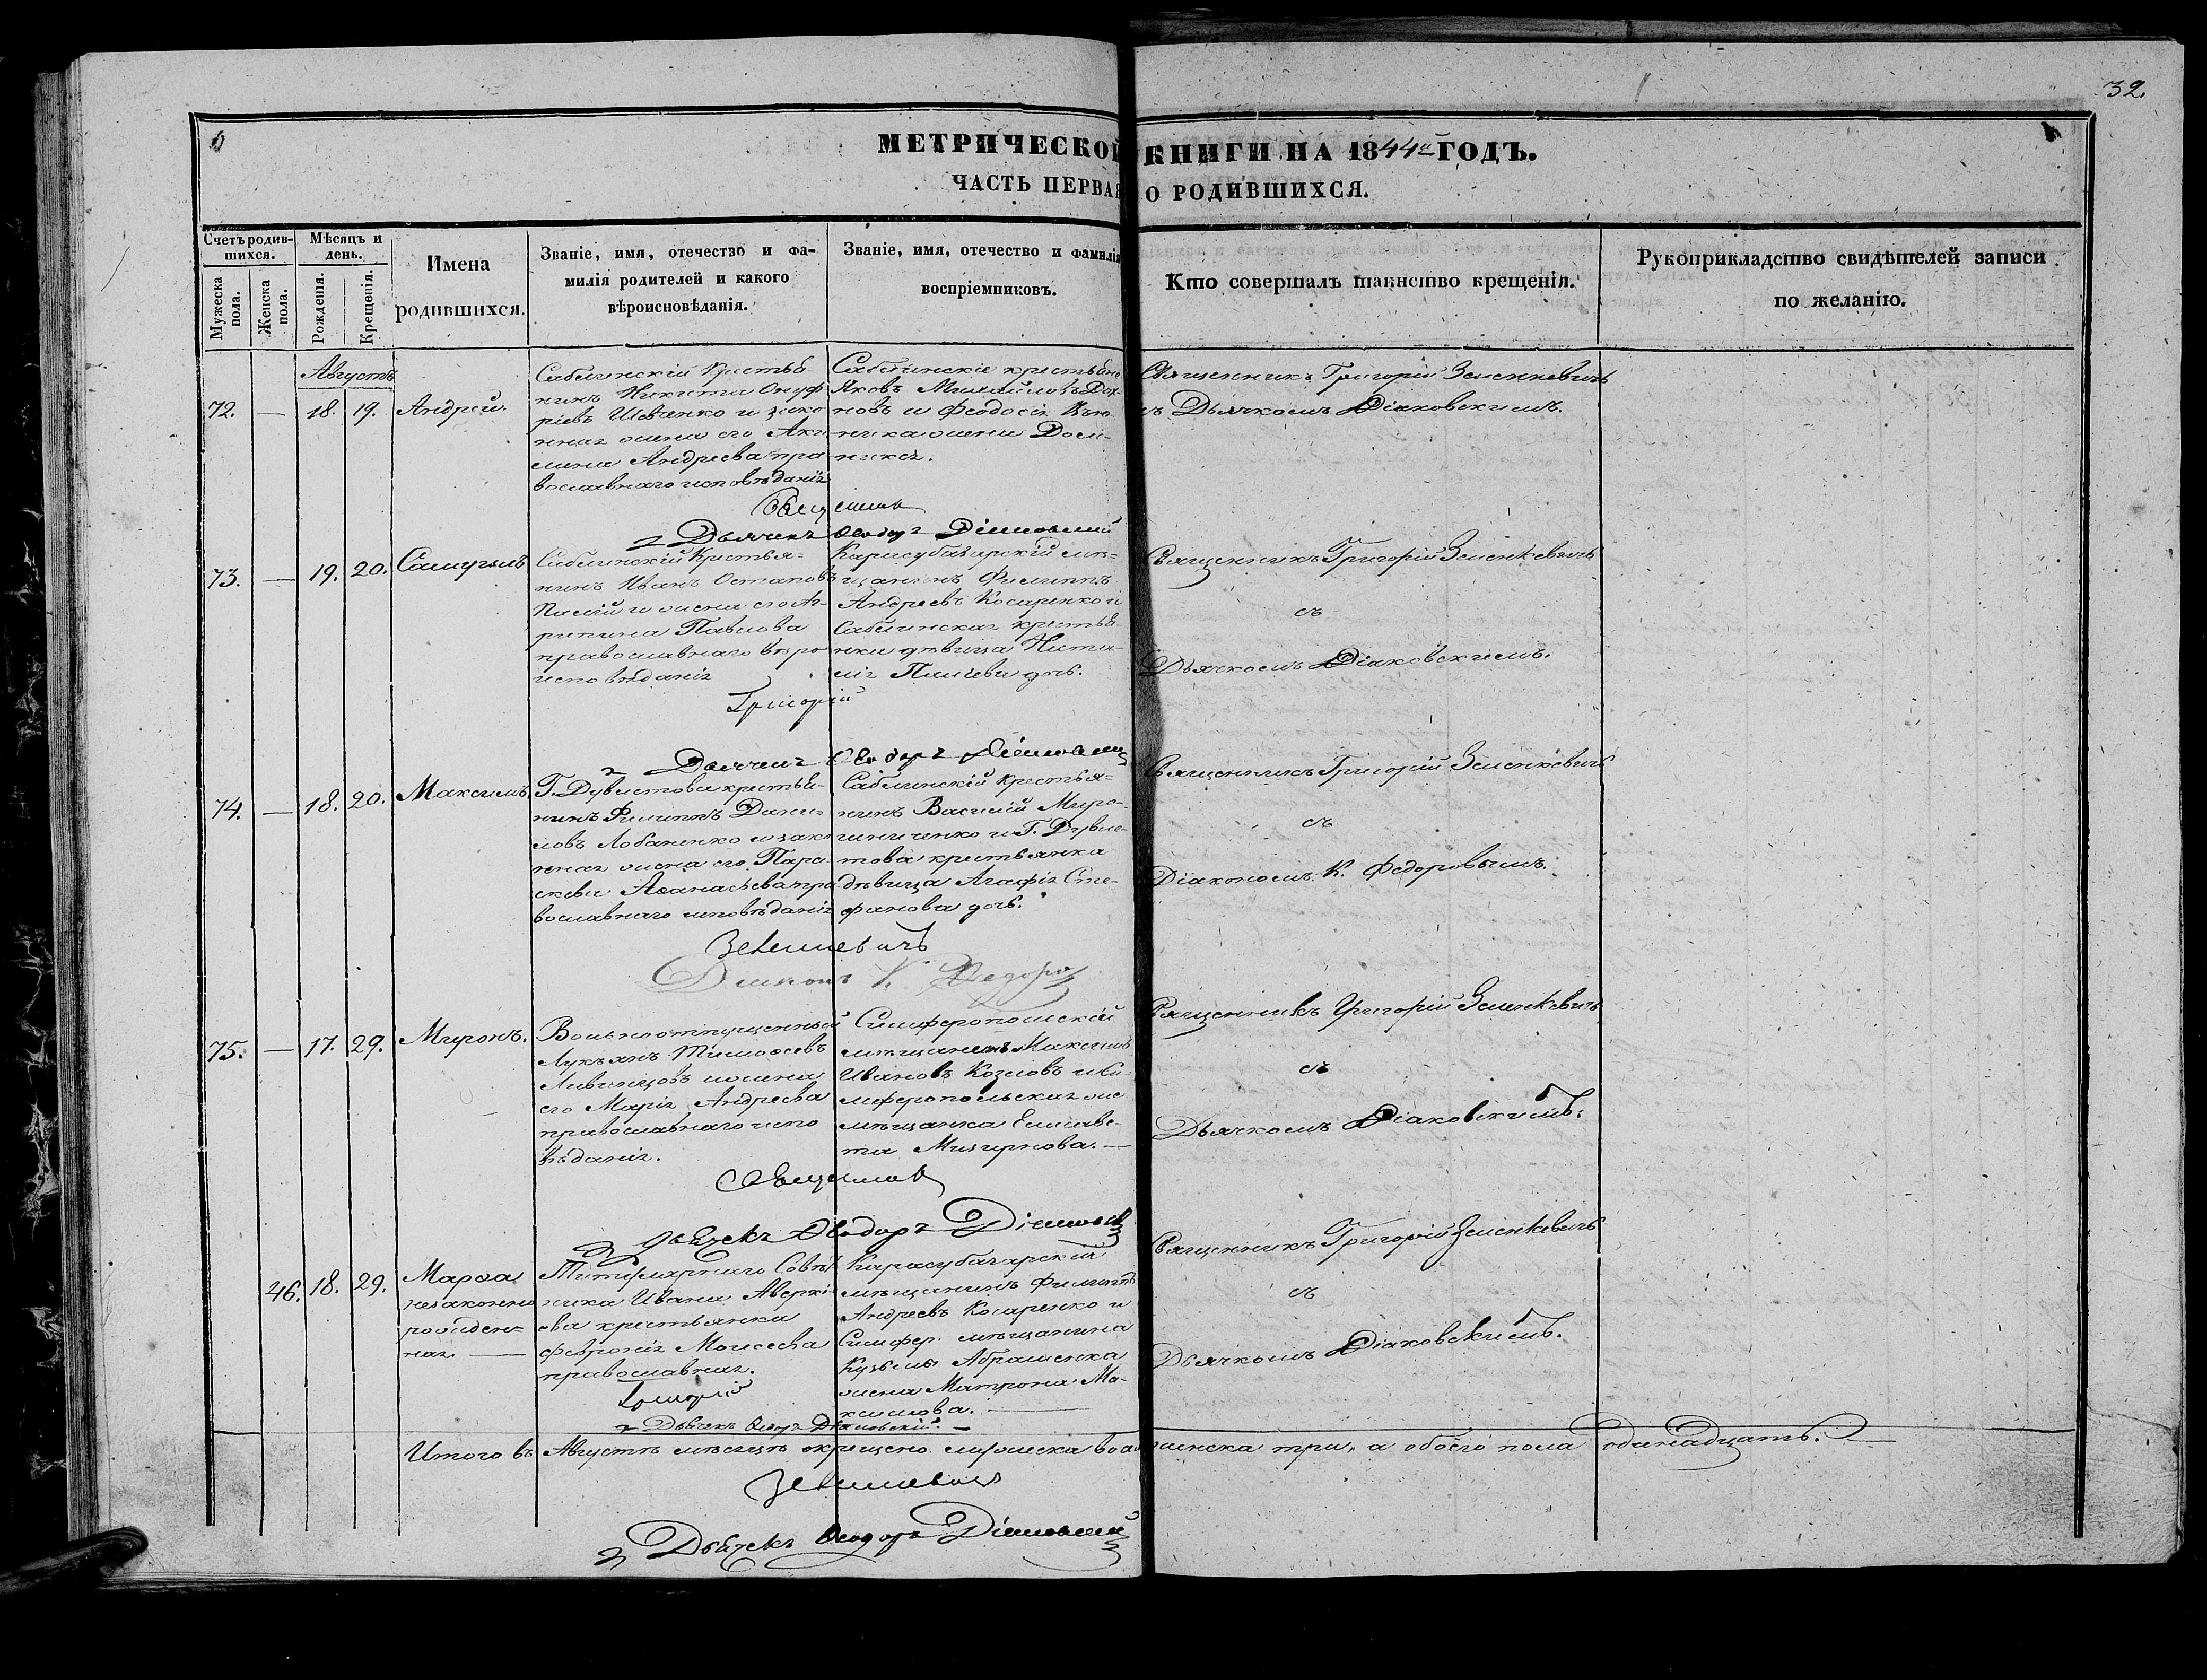 32.
МЕТРИЧЕСКОЙ КНИГИ НА 1844й ГОДЪ.
ЧАСТЬ ПЕРВАЯ О РОДИВШИХСЯ.
Счетъ родившихся.
Мужеска пола.
Женска пола.
Мѣсяцъ и день.
Рожденія.
Крещенія.
Имена
родившихся.
Званіе, имя, отечество и фа-
милія родителей и какого
вѣроисновѣданія.
Званіе, имя, отечество и фамилія
воспріемниковъ.
Кто совершалъ таинство крещенія.
Рукоприкладство свидѣтелей записи
по желанію.
Августъ
72. — 18. 19. Андрей.
Саблинскій Крестья
нинъ Никита Онуф
ріевъ Шевченко и зако
нная жена его Аки
лина Андреева пра
вославнаго исповѣданія
Саблинскіе крестьяне
Яковъ Михайловъ
новъ и Феодосія
ника жена Дом-
ника.
Священникъ Григорій Зеленкевичъ
съ Дьячкомъ Діаковскимъ.
Священник
Дьячекъ Ѳеодоръ Діаковский
73. — 19. 20. Самуилъ
Саблинскій Крестья-
нинъ Иванъ Остаповъ
Палій и жена его Аг-
рипина Павлова
православнаго вѣро
исповѣданія
Карасубазарскій мѣ-
щанинъ Филиппъ
Андреевъ Косаренко и
Саблинская крестья-
нки дѣвица Ната-
лія Палиева дочь.
Священникъ Григорій Зеленкевичъ
съ
Дьячкомъ Діаковскимъ.
Григорій
Дьячекъ Ѳеодоръ Діаковский
74. — 18. 20. Максимъ.
Г. Дувистова крестья-
нинъ Филиппъ Дани-
ловъ Лобаненко и зако
нная жена его Пара-
скева Аѳанасьева пра
вославнаго исповѣданія
Саблинскій Крестья-
нинъ Василій Миро-
шниченко и Г. Дувис-
това крестьянка
дѣвица Агафія Сте-
фанова дочь.
Священникъ Григорій Зеленкевичъ
съ
Діакономъ К. Федоровымъ.
Зеленкевичъ
Диаконъ К. Федоров
75. — 17. 29. Миронъ.
Вольноотпущенный
Лукьянъ Тимоѳеевъ
Ливинцовъ и жена
его Марія Андреева
православнаго испо
вѣданія.
Симферопольскій
мѣщанинъ Максимъ
Ивановъ Козловъ и Си
мферопольская же
мѣщанка Елисаве-
та Мизирнова. —
Священникъ Григорій Зеленкевичъ
съ
Дьячкомъ Діаковскимъ.
Священник
Дьячекъ Ѳеодоръ Діаковск
46. 18. 29. Марѳа
незаконно
рожден-
ная. —
Титулярнаго Совѣт
ника Ивана Аверкі-
ева крестьянки
Февронія Моисеева
православная.
Карасубазарскій
мѣщанинъ Филиппъ
Андреевъ Косаренко и
Симфер. мѣщанина
Кузьмы Абраменка
жена Матрона Ма-
ксимова. —
Священникъ Григорій Зеленкевичъ
съ
Дьячкомъ Діаковскимъ.
Григорій
Дьячекъ Ѳеодоръ Діаковскій. —
Итого въ Августѣ мѣсяцѣ окрещено мужеска женска три, а обоего пола одинадцать.
Зеленкевичъ
Дьячекъ Ѳеодоръ Діаковский